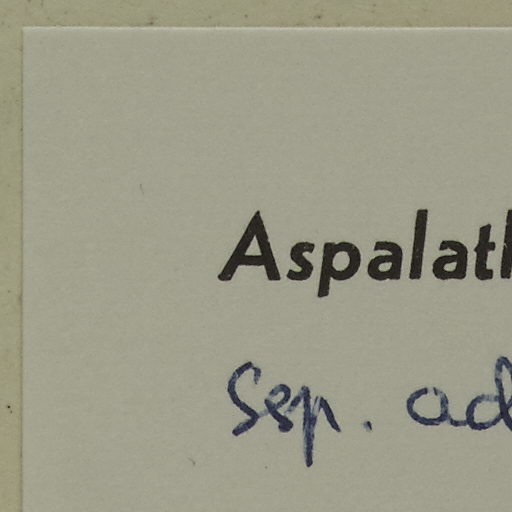 Aspalath
Ssp. ad